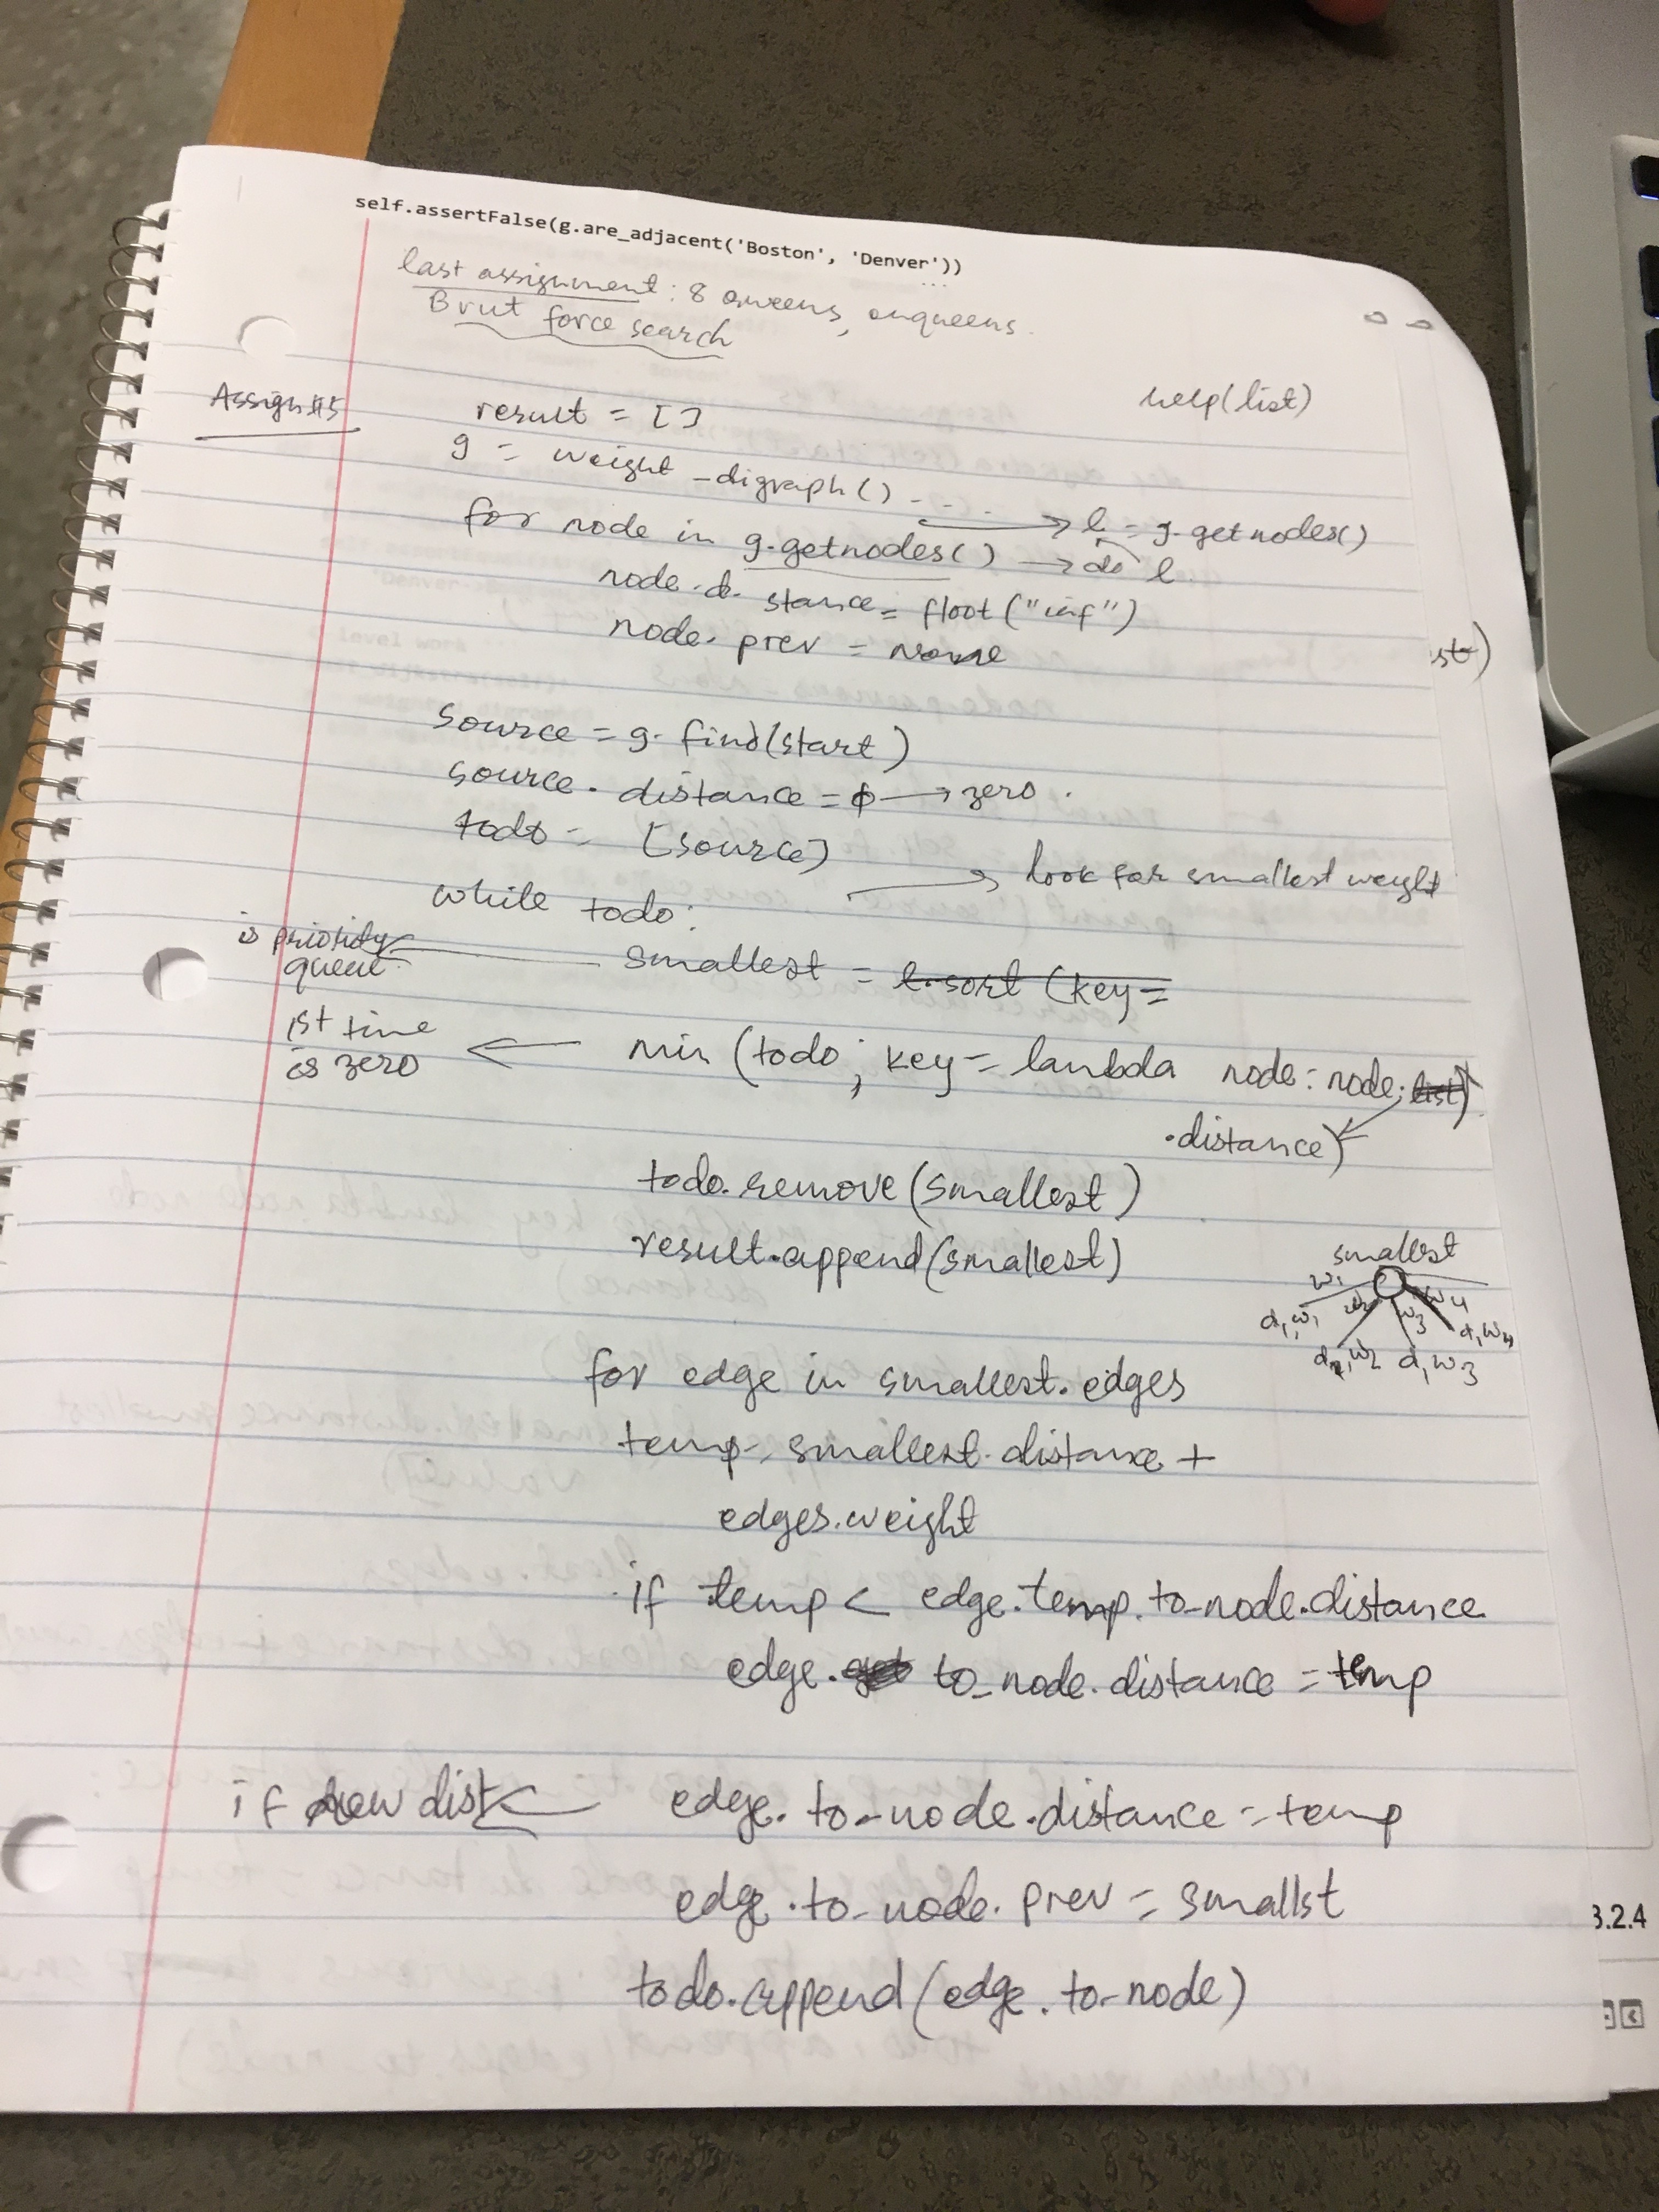 self.assertFalse(g.are_adjacent('Boston', 'Denver'))
last assignment : 8 queens,
Brut force search
Assign #5
help(list)
result = []
g = weight_digraph() - - -
for node in g.getnodes() → do l
→ l = g.getnodes()
node.di stance = float("inf")
node.prev = None
st)
source = g.find(start)
source. distance = φ → zero.
todo = [source]
→ look for smallest weight
while todo:
is priority
queue
smallest = l.sort (key =
1st time
is zero
min (todo, key = lambda node: node. list)
.distance)
todo.remove(smallest)
result.append(smallest)
smallest
w1 w2 w3 w4
d,w1 d,w2 d,w3 d,w4
for edge in smallest.edges
temp = smallest.distance +
edges.weight
if temp < edge.temp.to_node.distance
edge. get to_node.distance = temp
if new dist
edge.to_node.distance = temp
edge.to_node.prev = smallst
todo.append(edge.to_node)
3.2.4